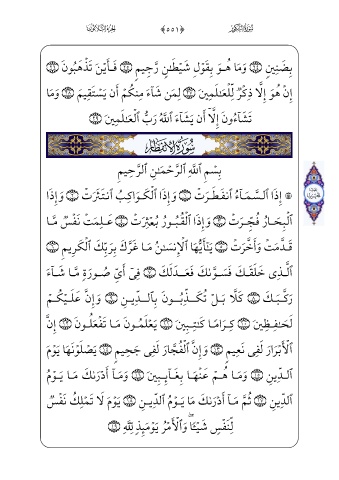 سُورَةُ التَّكْوِيرِ ﴿٥٥١﴾ الجزء الثلاثون
بِضَنِينٍ ۝٢٤ وَمَا هُوَ بِقَوْلِ شَيْطَٰنٍ رَّجِيمٍ ۝٢٥ فَأَيْنَ تَذْهَبُونَ ۝٢٦
إِنْ هُوَ إِلَّا ذِكْرٌ لِّلْعَٰلَمِينَ ۝٢٧ لِمَن شَآءَ مِنكُمْ أَن يَسْتَقِيمَ ۝٢٨ وَمَا
تَشَآءُونَ إِلَّآ أَن يَشَآءَ ٱللَّهُ رَبُّ ٱلْعَٰلَمِينَ ۝٢٩
سُورَةُ الانْفِطَارِ
بِسْمِ ٱللَّهِ ٱلرَّحْمَٰنِ ٱلرَّحِيمِ
۞ إِذَا ٱلسَّمَآءُ ٱنفَطَرَتْ ۝١ وَإِذَا ٱلْكَوَاكِبُ ٱنتَثَرَتْ ۝٢ وَإِذَا
ٱلْبِحَارُ فُجِّرَتْ ۝٣ وَإِذَا ٱلْقُبُورُ بُعْثِرَتْ ۝٤ عَلِمَتْ نَفْسٌ مَّا
قَدَّمَتْ وَأَخَّرَتْ ۝٥ يَٰٓأَيُّهَا ٱلْإِنسَٰنُ مَا غَرَّكَ بِرَبِّكَ ٱلْكَرِيمِ ۝٦
ٱلَّذِى خَلَقَكَ فَسَوَّىٰكَ فَعَدَلَكَ ۝٧ فِىٓ أَىِّ صُورَةٍ مَّا شَآءَ
رَكَّبَكَ ۝٨ كَلَّا بَلْ تُكَذِّبُونَ بِٱلدِّينِ ۝٩ وَإِنَّ عَلَيْكُمْ
لَحَٰفِظِينَ ۝١٠ كِرَامًا كَٰتِبِينَ ۝١١ يَعْلَمُونَ مَا تَفْعَلُونَ ۝١٢ إِنَّ
ٱلْأَبْرَارَ لَفِى نَعِيمٍ ۝١٣ وَإِنَّ ٱلْفُجَّارَ لَفِى جَحِيمٍ ۝١٤ يَصْلَوْنَهَا يَوْمَ
ٱلدِّينِ ۝١٥ وَمَا هُمْ عَنْهَا بِغَآئِبِينَ ۝١٦ وَمَآ أَدْرَىٰكَ مَا يَوْمُ
ٱلدِّينِ ۝١٧ ثُمَّ مَآ أَدْرَىٰكَ مَا يَوْمُ ٱلدِّينِ ۝١٨ يَوْمَ لَا تَمْلِكُ نَفْسٌ
لِّنَفْسٍ شَيْـًٔا ۖ وَٱلْأَمْرُ يَوْمَئِذٍ لِّلَّهِ ۝١٩